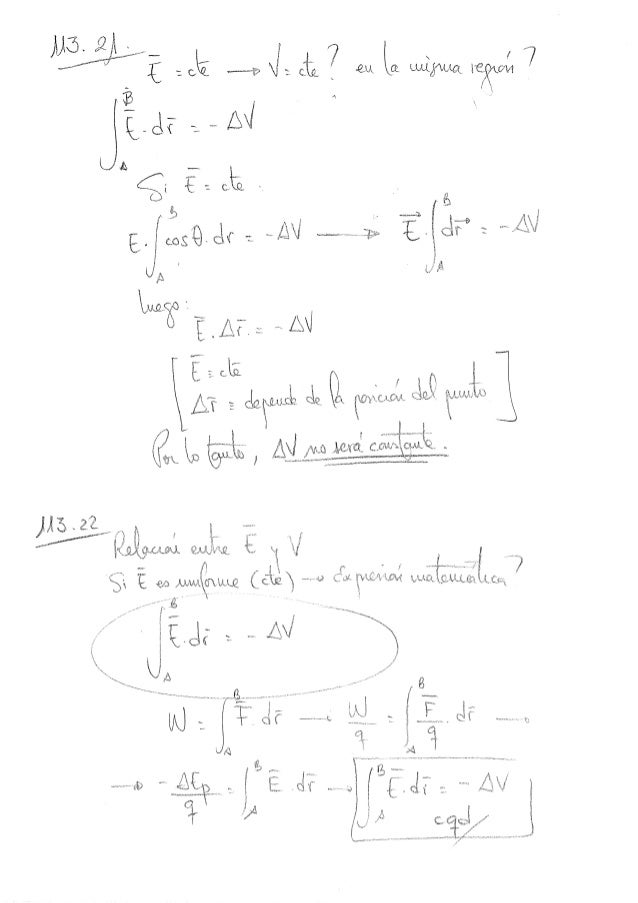 M3.21.
Ē = cte → V = cte? en la misma región?
∫_A^B Ē. dr̄ = - ΔV
Si Ē = cte.
E. ∫_A^B cosθ. dr = - ΔV → E⃗. ∫_A^B dr⃗ = - ΔV
luego:
Ē. Δr̄. = - ΔV
[ Ē = cte
Δr̄ = depende de la posición del punto ]
Por lo tanto, ΔV no será constante.
M3.22
Relación entre Ē y V
Si Ē es uniforme (cte) → Expresión matemática?
∫_A^B Ē. dr̄ = - ΔV
W = ∫_A^B F̄. dr̄ → W/q = ∫_A^B F̄/q . dr̄ →
→ - ΔEp/q = ∫_A^B Ē. dr̄ → ∫_A^B Ē. dr̄ = - ΔV
cqd